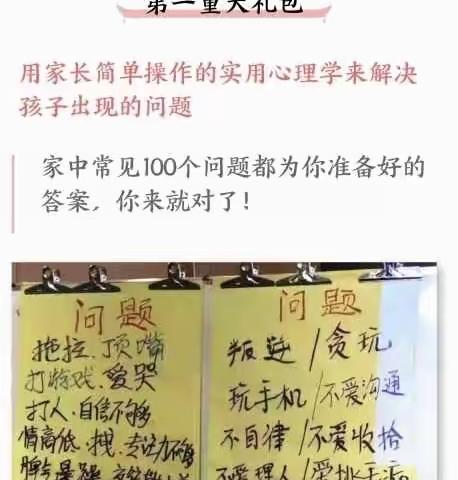 第一重大礼包
用家长简单操作的实用心理学来解决
孩子出现的问题
家中常见100个问题都为你准备好的
答案，你来就对了！
问题
拖拉、顶嘴
打游戏、爱哭
打人、自信不够
情商低、拽、专注力不够
脾气暴躁
问题
叛逆/贪玩
玩手机/不爱沟通
不自律/不爱收拾
不爱理人/爱挑